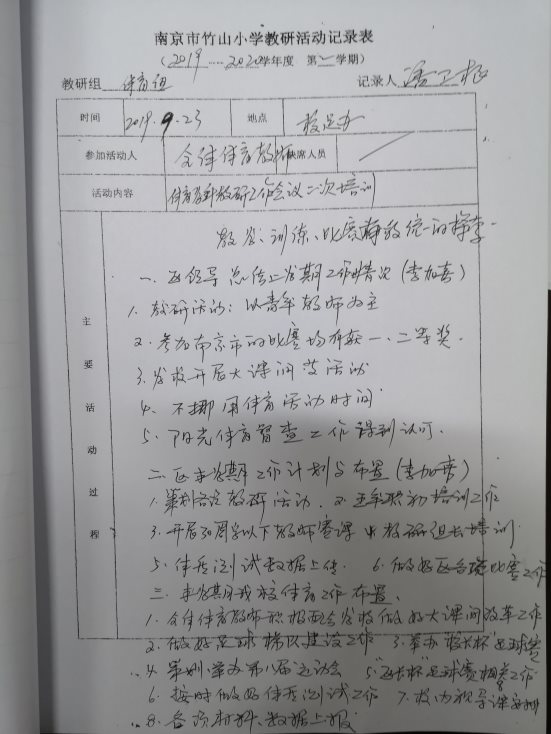 南京市竹山小学教研活动记录表
(2019—2020学年度 第一学期)
教研组 体育组 记录人
时间 2019.9.23 地点
参加活动人 全体体育教师 缺席人员
活动内容 体育教研工作会议二次培训
主要活动过程
教学、训练、比赛 统一的
一、区领导总结上学期工作情况(李加春)
1. 教研活动:以青年教师为主
2. 参加南京市的比赛均有获一、二等奖.
3. 学校开展大课间等活动
4. 不挪用体育活动时间
5. 阳光体育督查工作得到认可.
二、区本学期工作计划与布置(李加春)
1. 策划各次教研活动. 2. 培训工作
3. 开展 周岁以下教师赛课 4. 教研组长培训
5. 体质测试数据上传. 6. 做好区各项比赛工作
三、本学期我校体育工作布置.
1. 全体体育教师积极配合学校做好大课间改革工作
2. 做好足球梯队建设工作 3. 举办“校长杯”足球赛
4. 策划、举办第八届运动会 5. “区长杯”足球赛相关工作
6. 按时做好体质测试工作 7. 校内
8. 各项材料、数据上报